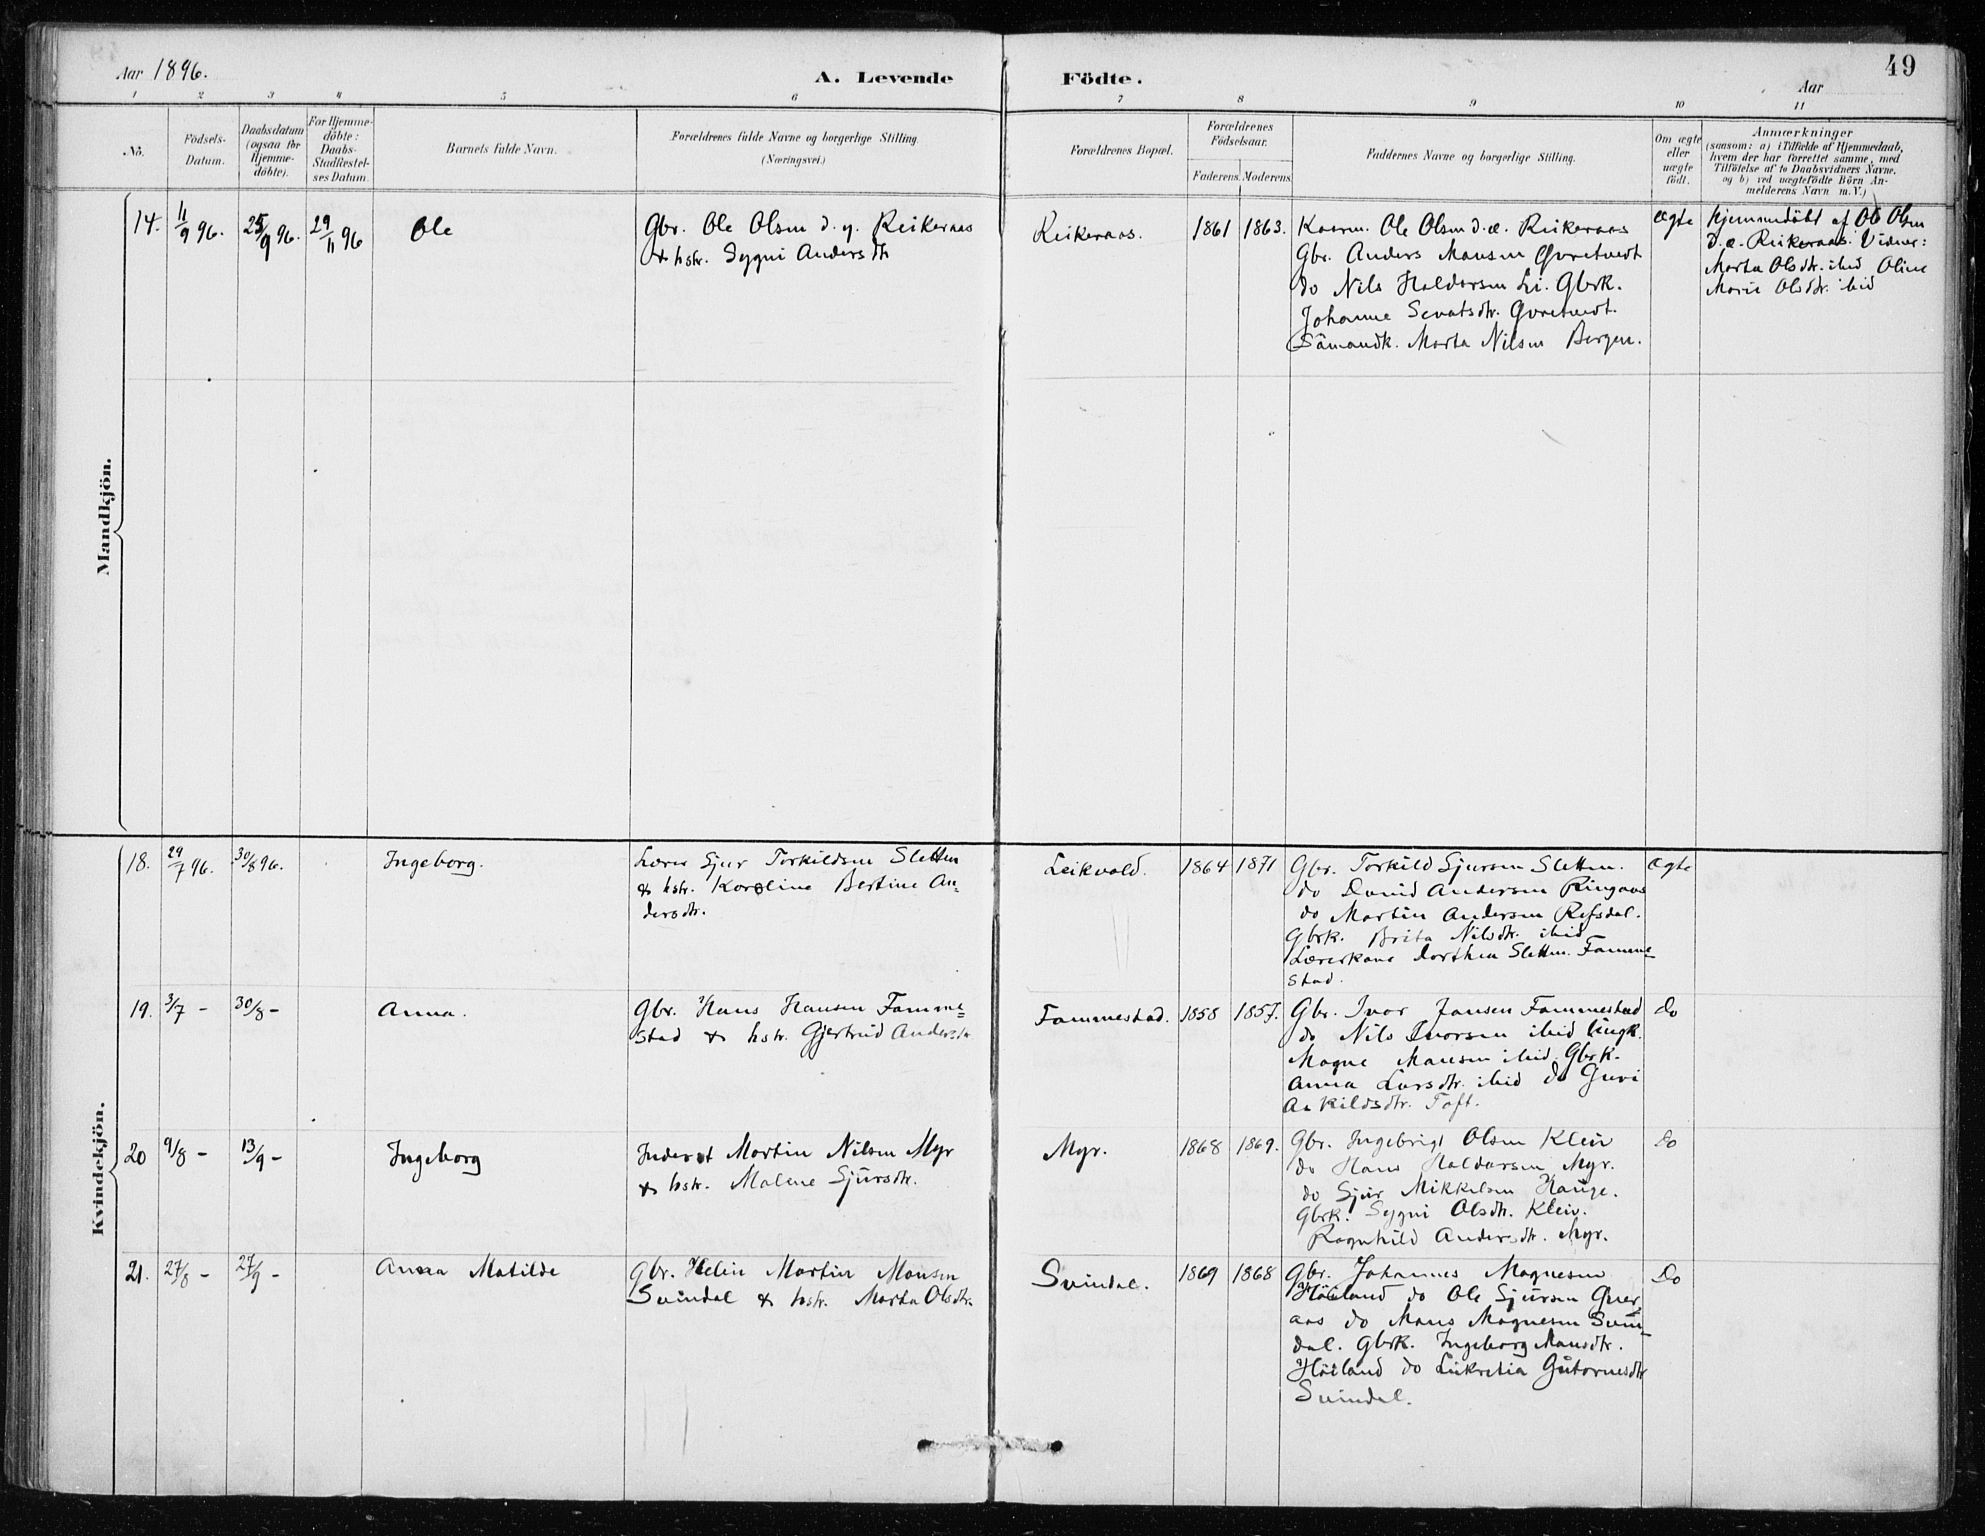 49
Aar 1896.
A. Levende Födte.
Aar
1 2 3 4 5 6 7 8 9 10 11
No.
Födsels-
Datum.
Daabsdatum
(ogsaa for
Hjemme-
döbte).
For Hjemme-
döbte:
Daabs-
Stadfæstel-
ses Datum.
Barnets fulde Navn.
Forældrenes fulde Navne og borgerlige Stilling.
(Næringsvei.)
Forældrenes Bopæl.
Forældrenes
Födselsaar.
Faderens. Moderens.
Faddernes Navne og borgerlige Stilling.
Om ægte
eller
uægte
födt.
Anmærkninger
(saasom: a) i Tilfælde af Hjemmedaab,
hvem der har forrettet samme, med
Tilföielse af to Daabsvidners Navne.
og b) ved uægtefödte Börn An-
melderens Navn m. V.)
Mandkjön.
14.
11/9 96.
25/9 96.
29/11 96
Ole
Gbr. Ole Olsen d. y. Reikeraas
& hstr. Sygni Andersdtr
Reikeraas.
1861
1863.
Kaarm. Ole Olsen d. æ. Reikeraas
Gbr. Anders Mansen Qvretvedt
do Nils Haldorsen Li. Gbrk.
Johanne Sevatsdtr. Qvretvedt.
Sömandk. Marta Nilsen Bergen.
ægte
hjemmedöbt af Ole Olsen
d. æ. Reikeraas. Vidner:
Marta Olsdtr. ibid Oline
Marie Olsdtr. ibid
Kvindekjön.
18.
29/7 96.
30/8 96.
Ingeborg.
Lærer Sjur Torkildsen Sletten
& hstr. Karoline Bertine An-
dersdtr.
Leikvold.
1864
1871
Gbr. Torkild Sjursen Sletten.
do David Andersen Ringaas
do Martin Andersen Refsdal.
Gbrk. Brita Nilsdtr. ibid
Lærerkone Dorthea Sletten Famme-
stad.
Ægte
19.
3/7 -
30/8 -
Anna.
Gbr. Hans Hansen Famme-
stad & hstr. Gjertrud Andersdtr
Fammestad.
1858
1857.
Gbr. Ivar Jansen Fammestad
do Nils Ivarsen ibid Ungk.
Magne Mansen ibid. Gbrk.
Anna Larsdtr. ibid do Guri
Askildsdtr. Toft.
Do
20
9/8 -
13/9 -
Ingeborg
Inderst Martin Nilsen Myr
& hstr. Malene Sjursdtr.
Myr.
1868
1869.
Gbr. Ingebrigt Olsen Kleiv
do Hans Haldorsen Myr.
do Sjur Mikkelsen Hauge.
Gbrk. Sygni Olsdtr. Kleiv.
Ragnhild Andersdtr. Myr.
Do
21.
27/8 -
27/9 -
Anna Matilde
Gbr. Helin Martin Monsen
Svindal & hstr. Marta Olsdtr.
Svindal.
1869
1868
Gbr. Johannes Magnesen
Höiland do Ole Sjursen
aas do Mans Magnesen Svin-
dal. Gbrk. Ingeborg Mansdtr.
Höiland do Lukretia Gutormsdtr
Svindal.
Do